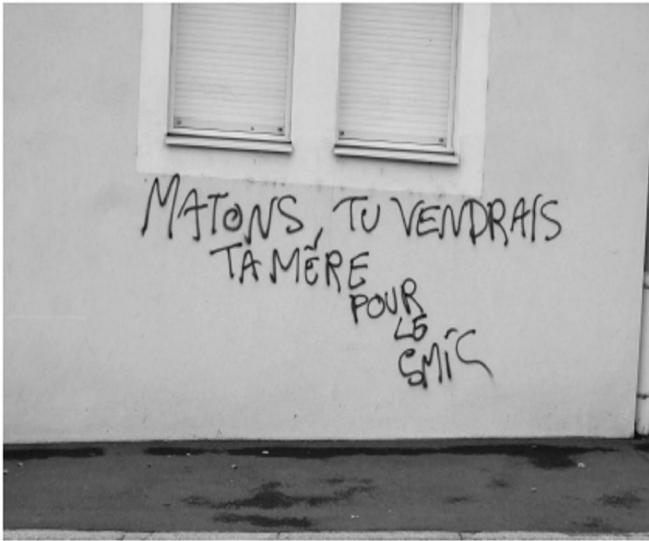 MATONS, TU VENDRAIS
TA MÈRE
POUR
LE
SMIC